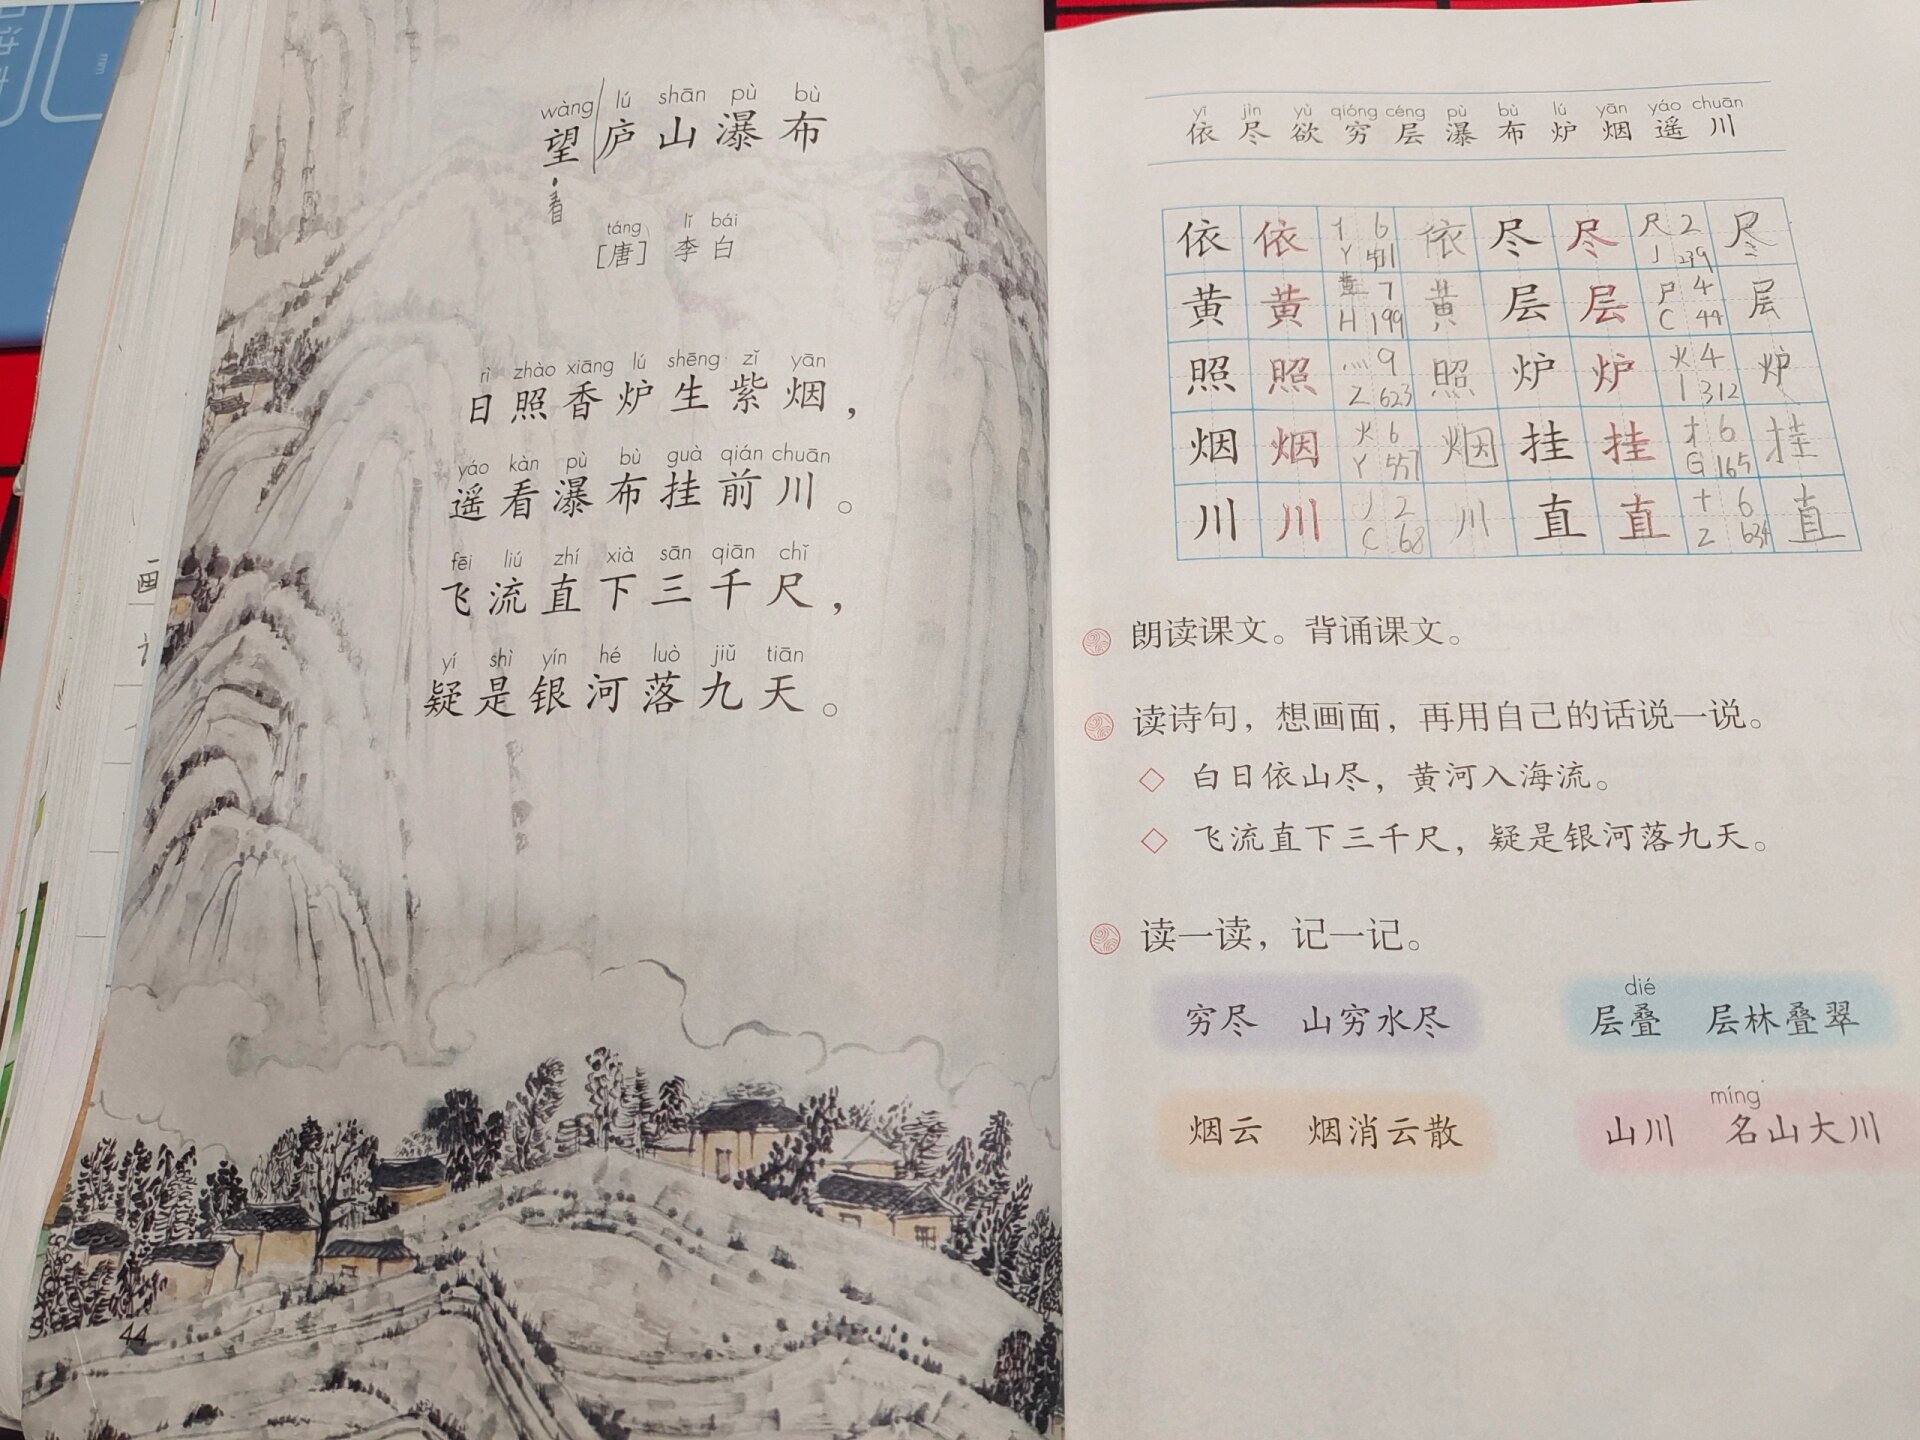 wàng lú shān pù bù
望庐山瀑布
看
táng lǐ bái
[唐] 李白
rì zhào xiāng lú shēng zǐ yān
日照香炉生紫烟，
yáo kàn pù bù guà qián chuān
遥看瀑布挂前川。
fēi liú zhí xià sān qiān chǐ
飞流直下三千尺，
yí shì yín hé luò jiǔ tiān
疑是银河落九天。
画
44
yī jìn yù qióng céng pù bù lú yān yáo chuān
依尽欲穷层瀑布炉烟遥川
依 依 亻 6 依 尽 尽 尺 2 尽
Y 531 J 239
黄 黄 黄 7 黄 层 层 尸 4 层
H 199 C 44
照 照 灬 9 照 炉 炉 火 4 炉
Z 623 l 312
烟 烟 火 6 烟 挂 挂 扌 6 挂
Y 557 G 165
川 川 丿 2 川 直 直 十 6 直
C 68 Z 634
朗读课文。背诵课文。
读诗句，想画面，再用自己的话说一说。
◇ 白日依山尽，黄河入海流。
◇ 飞流直下三千尺，疑是银河落九天。
读一读，记一记。
dié
穷尽 山穷水尽 层叠 层林叠翠
míng
烟云 烟消云散 山川 名山大川